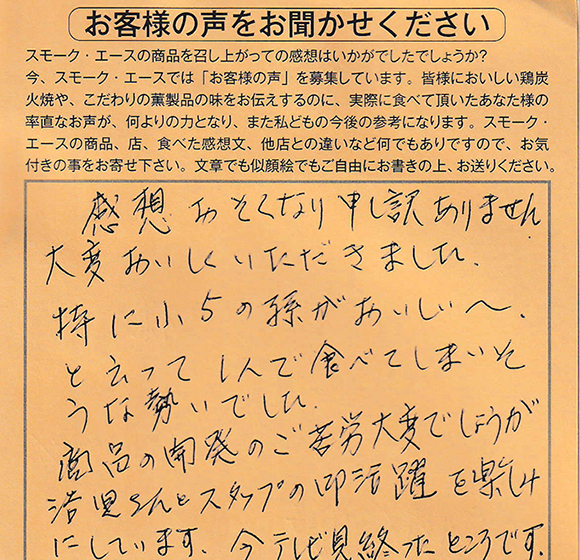 お客様の声をお聞かせください
スモーク・エースの商品を召し上がっての感想はいかがでしたでしょうか?
今、スモーク・エースでは「お客様の声」を募集しています。皆様においしい鶏炭
火焼や、こだわりの薫製品の味をお伝えするのに、実際に食べて頂いたあなた様の
率直なお声が、何よりの力となり、また私どもの今後の参考になります。スモーク・
エースの商品、店、食べた感想文、他店との違いなど何でもありですので、お気
付きの事をお寄せ下さい。文章でも似顔絵でもご自由にお書きの上、お送りください。
感想おそくなり申し訳ありません
大変おいしくいただきました.
特に小5の孫がおいしい〜.
と云って 食べてしまいそ
うな勢いでした.
商品の開発のご苦労大変でしょうが
さんとスタッフの 活躍を楽しみ
にしています. 今テレビ見終ったところです.